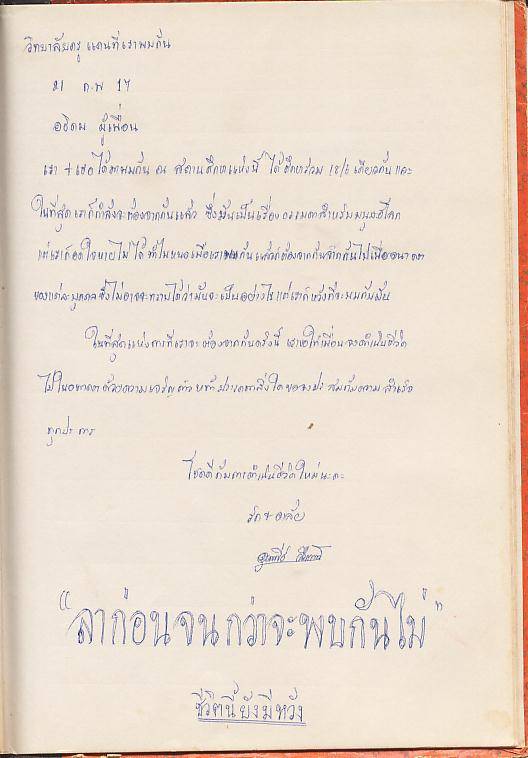 วิทยาลัยครู แดนที่เราพบกัน
21 ก.พ 17
อธิคม ผู้เพื่อน
เรา + เธอ ได้มาพบกัน ณ สถานศึกษาแห่งนี้ ได้ศึกษาร่วม เดียวกัน และ
ในที่สุด เราก็กำลังจะต้องจากกันแล้ว ซึ่งมันเป็นเรื่อง ธรรมดาสำหรับมนุษย์โลก
แต่เราก็อดใจหายไม่ได้ ทำไมหนอเมื่อเราพบกัน แล้วก็ต้องจากกัน จากกันไปเพื่ออนาคต
ของแต่ละบุคคล ซึ่งไม่อาจจะทราบได้ว่ามันจะเป็นอย่างไร แต่เราก็หวังที่จะพบกับมัน
ในที่สุดแห่งการที่เราจะ ต้องจากกันครั้งนี้ เราขอให้เพื่อนจงดำเนินชีวิต
ไปในอนาคต ด้วยความเจริญก้าวหน้า ปรารถนาสิ่งใด ขอจงประสบกับความสำเร็จ
ทุกประการ
โชคดีกับการดำเนินชีวิตใหม่นะคะ
รัก + อาลัย
"ลาก่อนจนกว่าจะพบกันใหม่"
ชีวิตนี้ยังมีหวัง